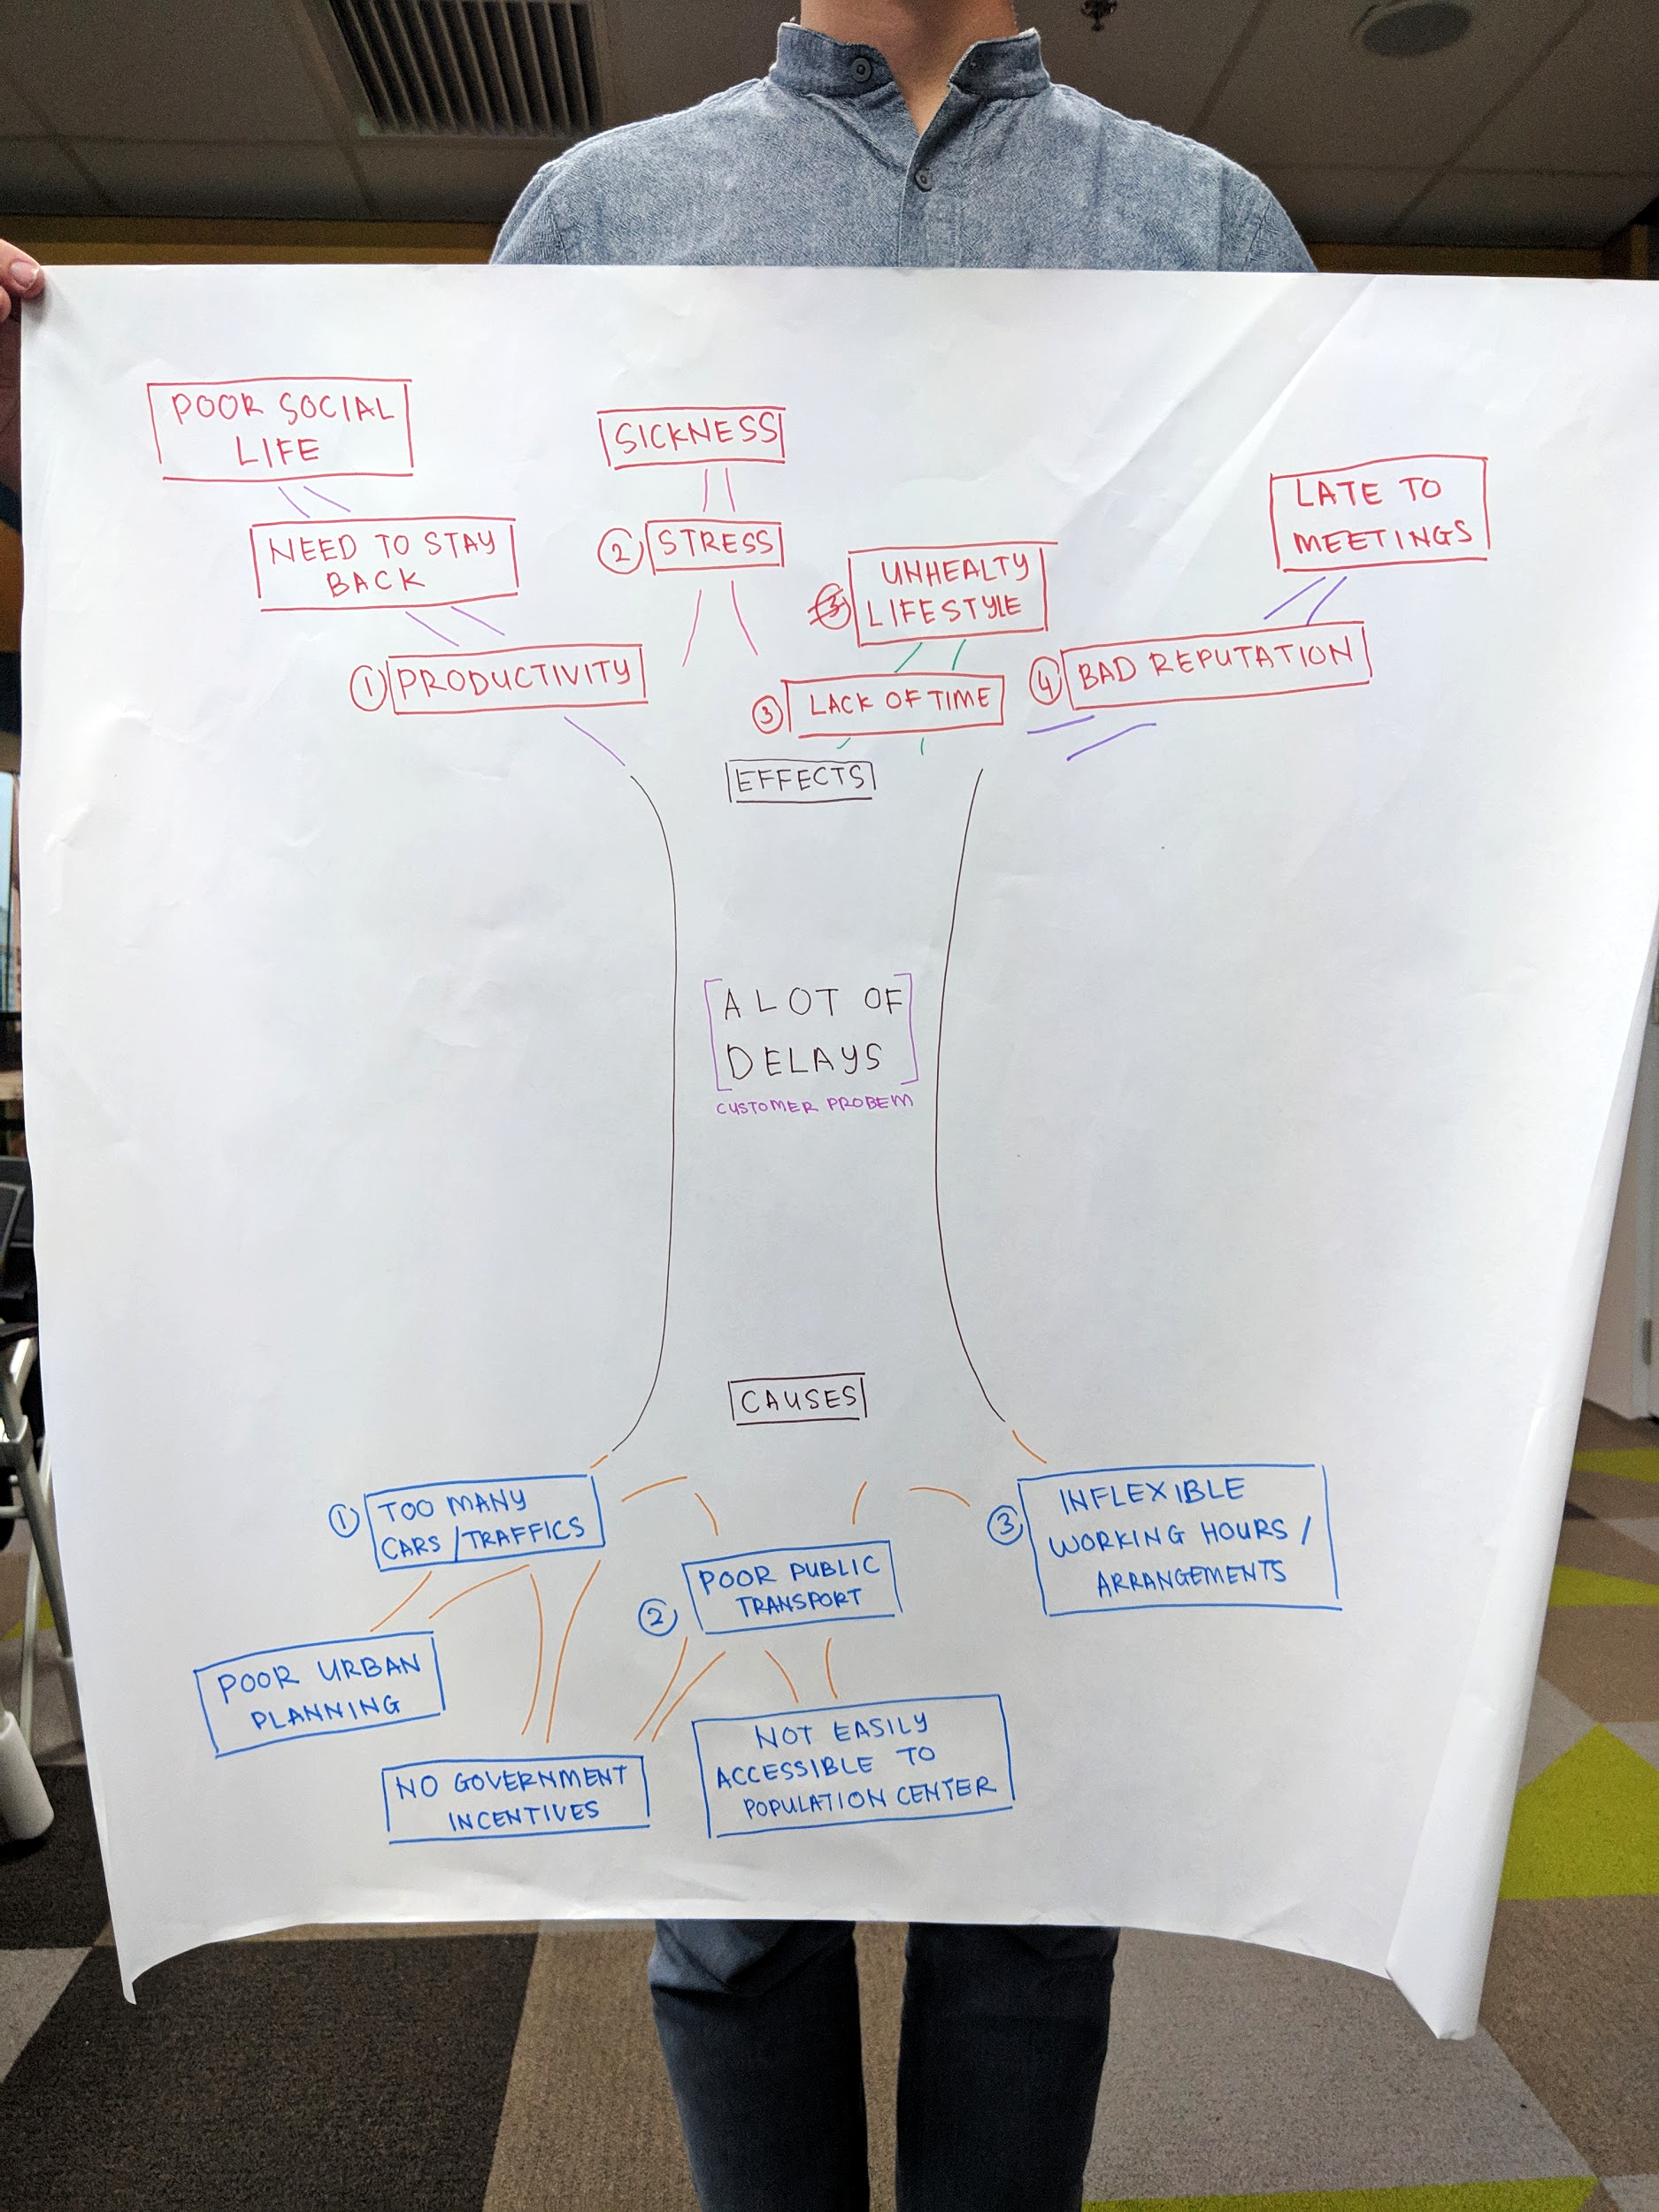 POOR SOCIAL
LIFE
SICKNESS
LATE TO
MEETINGS
NEED TO STAY
BACK
2 STRESS
3 UNHEALTY
LIFESTYLE
1 PRODUCTIVITY
3 LACK OF TIME
4 BAD REPUTATION
EFFECTS
A LOT OF
DELAYS
CUSTOMER PROBEM
CAUSES
1 TOO MANY
CARS / TRAFFICS
2 POOR PUBLIC
TRANSPORT
3 INFLEXIBLE
WORKING HOURS /
ARRANGEMENTS
POOR URBAN
PLANNING
NO GOVERNMENT
INCENTIVES
NOT EASILY
ACCESSIBLE TO
POPULATION CENTER